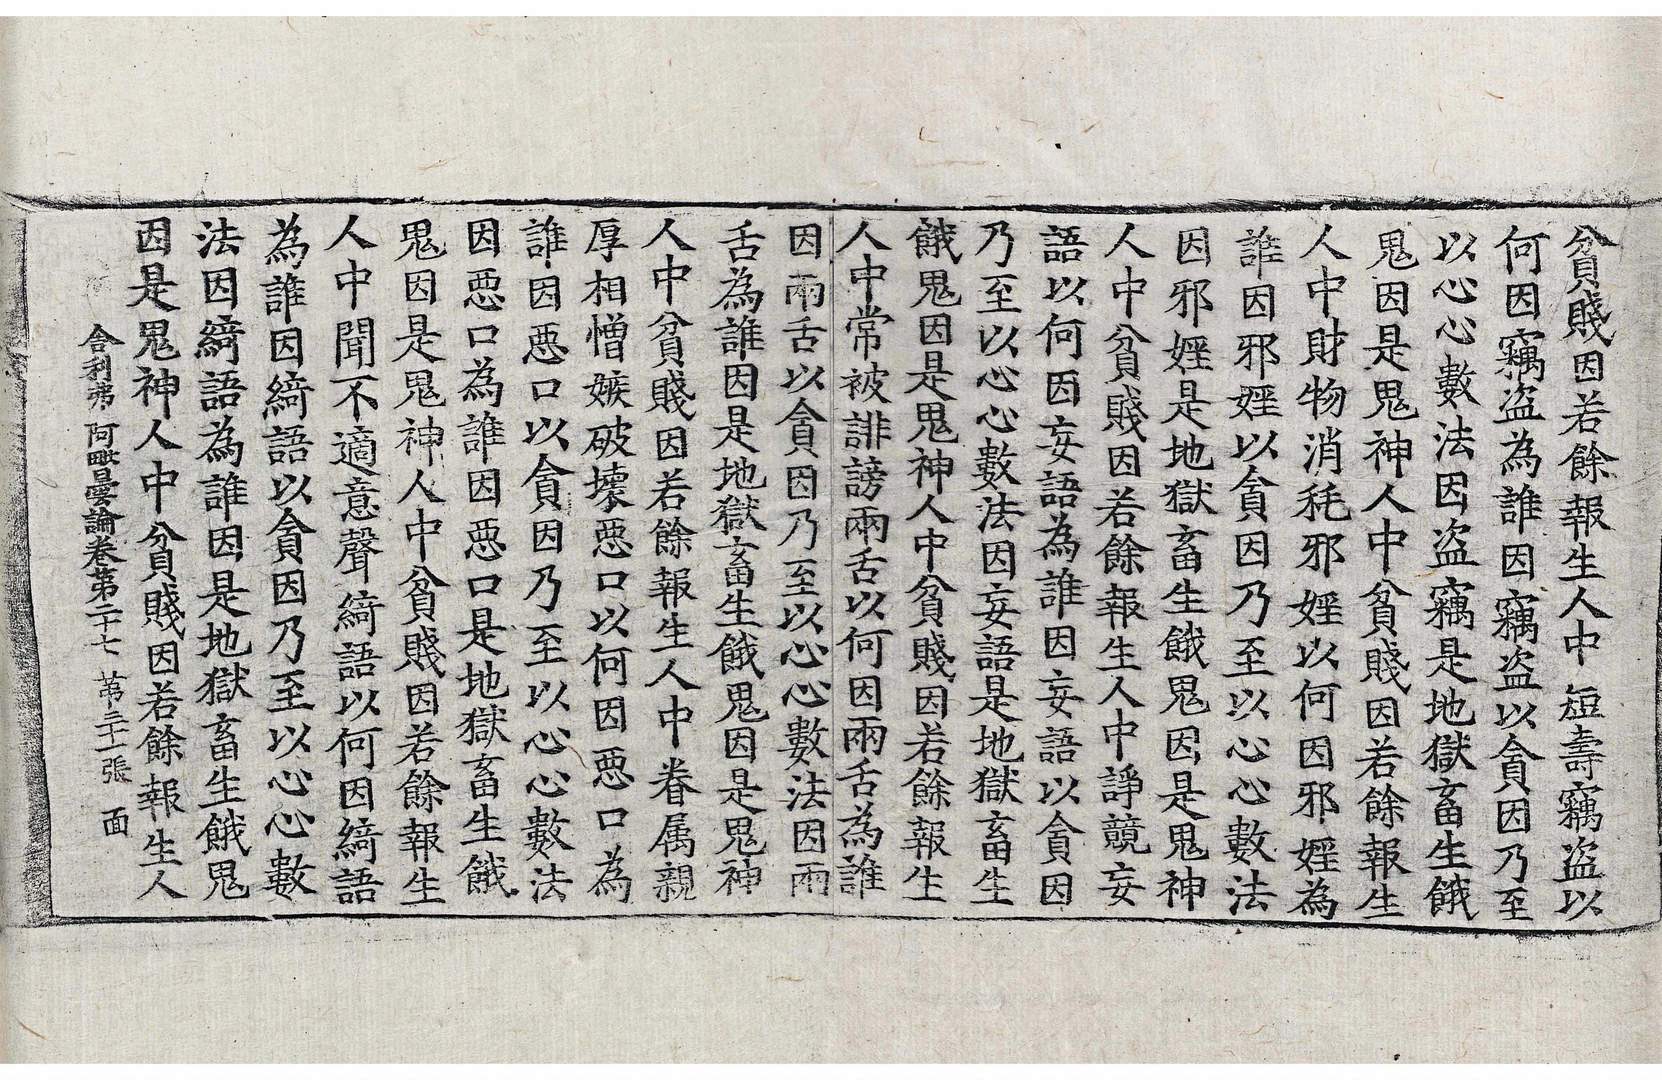 貧賤因若餘報生人中短壽竊盜以
何因竊盜為誰因竊盜以貪因乃至
以心心數法因盜竊是地獄畜生餓
鬼因是鬼神人中貧賤因若餘報生
人中財物消秏邪婬以何因邪婬為
誰因邪婬以貪因乃至以心心數法
因邪婬是地獄畜生餓鬼因是鬼神
人中貧賤因若餘報生人中諍競妄
語以何因妄語為誰因妄語以貪因
乃至以心心數法因妄語是地獄畜生
餓鬼因是鬼神人中貧賤因若餘報生
人中常被誹謗兩舌以何因兩舌為誰
因兩舌以貪因乃至以心心數法因兩
舌為誰因是地獄畜生餓鬼因是鬼神
人中貧賤因若餘報生人中眷属親
厚相憎嫉破壞惡口以何因惡口為
誰因惡口以貪因乃至以心心數法
因惡口為誰因惡口是地獄畜生餓
鬼因是鬼神人中貧賤因若餘報生
人中聞不適意聲綺語以何因綺語
為誰因綺語以貪因乃至以心心數
法因綺語為誰因是地獄畜生餓鬼
因是鬼神人中貧賤因若餘報生人
舍利弗阿毗曇論卷第二十七 第二十一張 面